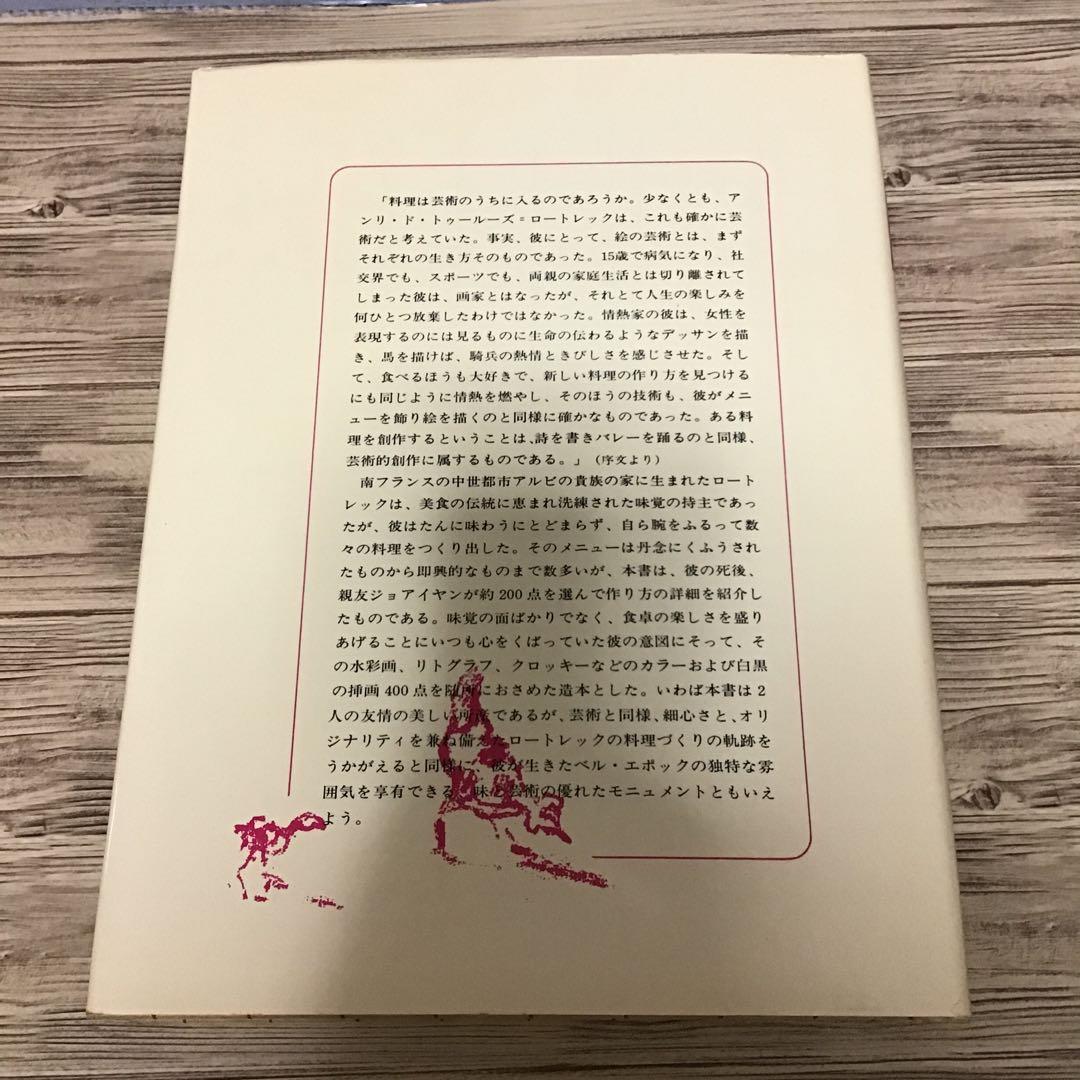 「料理は芸術のうちに入るのであろうか。少なくとも、ア
ンリ・ド・トゥールーズ=ロートレックは、これも確かに芸
術だと考えていた。事実、彼にとって、絵の芸術とは、まず
それぞれの生き方そのものであった。15歳で病気になり、社
交界でも、スポーツでも、両親の家庭生活とは切り離されて
しまった彼は、画家とはなったが、それとて人生の楽しみを
何ひとつ放棄したわけではなかった。情熱家の彼は、女性を
表現するのには見るものに生命の伝わるようなデッサンを描
き、馬を描けば、騎兵の熱情ときびしさを感じさせた。そし
て、食べるほうも大好きで、新しい料理の作り方を見つける
にも同じように情熱を燃やし、そのほうの技術も、彼がメニ
ューを飾り絵を描くのと同様に確かなものであった。ある料
理を創作するということは、詩を書きバレーを踊るのと同様、
芸術的創作に属するものである。」(序文より)
南フランスの中世都市アルビの貴族の家に生まれたロート
レックは、美食の伝統に恵まれ洗練された味覚の持主であっ
たが、彼はたんに味わうにとどまらず、自ら腕をふるって数
々の料理をつくり出した。そのメニューは丹念にくふうされ
たものから即興的なものまで数多いが、本書は、彼の死後、
親友ジョアイヤンが約200点を選んで作り方の詳細を紹介し
たものである。味覚の面ばかりでなく、食卓の楽しさを盛り
あげることにいつも心をくばっていた彼の意図にそって、そ
の水彩画、リトグラフ、クロッキーなどのカラーおよび白黒
の挿画400点を随所におさめた造本とした。いわば本書は2
人の友情の美しい所産であるが、芸術と同様、細心さと、オリ
ジナリティを兼ね備えたロートレックの料理づくりの軌跡を
うかがえると同様に、彼が生きたベル・エポックの独特な雰
囲気を享有できる、味と芸術の優れたモニュメントともいえ
よう。